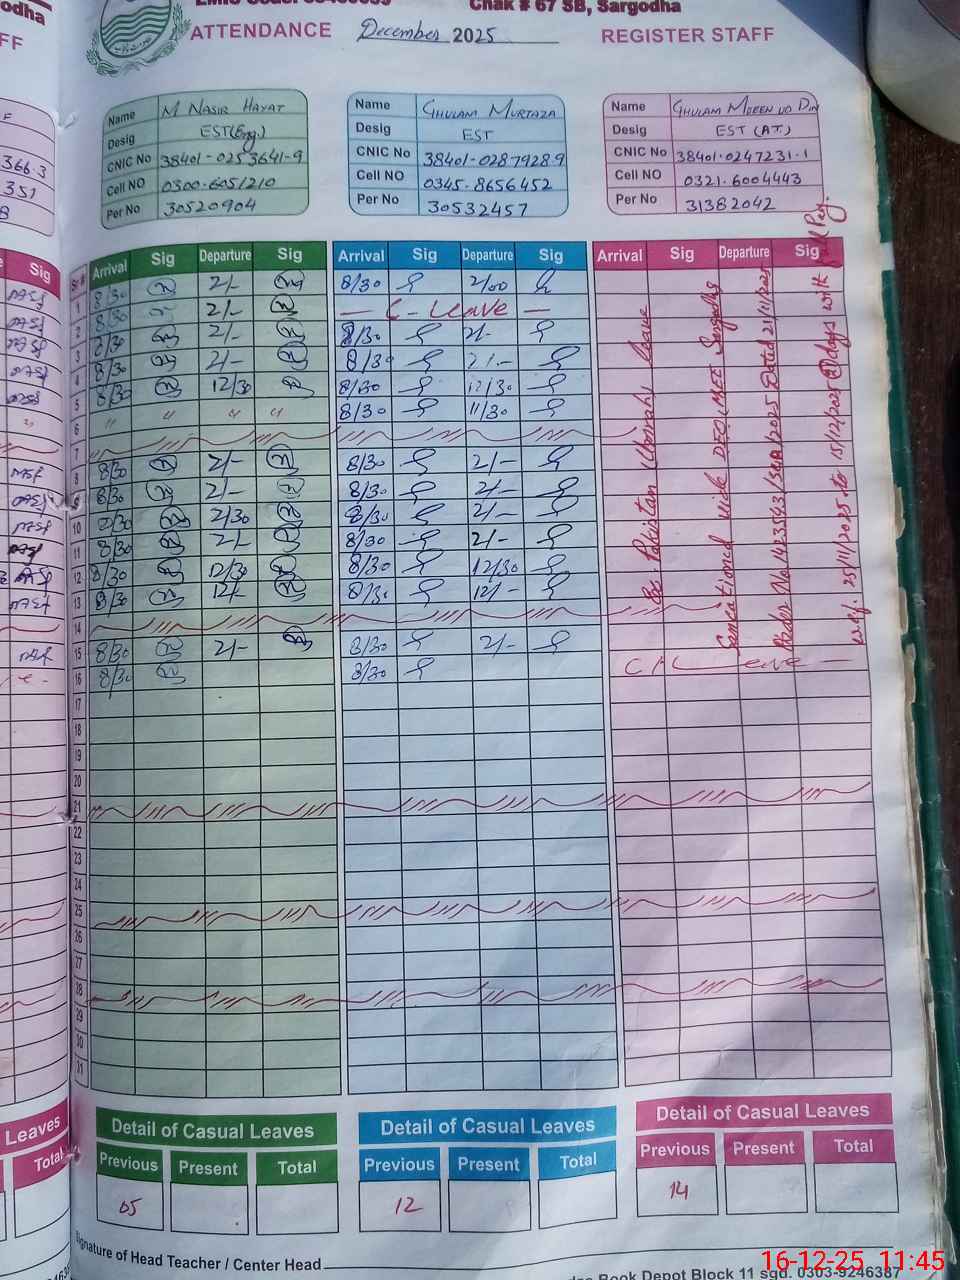 Chak # 67 SB, Sargodha
ATTENDANCE December 2025 REGISTER STAFF
Name M NASIR HAYAT
Desig EST(Eng.)
CNIC No 38401-0253641-9
Cell NO 0300-6051210
Per No 30520904
Name GHULAM MURTAZA
Desig EST
CNIC No 38401-0287928-9
Cell NO 0345-8656452
Per No 30532457
Name GHULAM MOEEN UD DIN
Desig EST (AT)
CNIC No 38401-0247231-1
Cell NO 0321-6004443
Per No 31382042
Sr # Arrival Sig Departure Sig Arrival Sig Departure Sig Arrival Sig Departure Sig
1 8/30 2/- 8/30 2/00
2 8/30 2/- — C-Leave —
3 8/30 2/- 8/30 2/-
4 8/30 2/- 8/30 2/-
5 8/30 12/30 8/30 12/30
6 " " " " 8/30 11/30
7
8 8/30 2/- 8/30 2/-
9 8/30 2/- 8/30 2/-
10 8/30 2/30 8/30 2/-
11 8/30 2/- 8/30 2/-
12 8/30 12/30 8/30 12/30
13 8/30 12/- 8/30 12/-
14
15 8/30 2/- 8/30 2/-
16 8/30 8/30 Leave —
17
18
19
20
21
22
23
24
25
26
27
28
29
30
31
Ex Pakistan Leave
Sanctioned vide DEO, MEE Sargodha
Order No 1423543/ Dated 21/11/2025
w.e.f. 25/11/2025 to 15/12/2025 days with full Pay.
Detail of Casual Leaves
Previous Present Total
05
Detail of Casual Leaves
Previous Present Total
12
Detail of Casual Leaves
Previous Present Total
14
Signature of Head Teacher / Center Head
Book Depot Block 11 sgd. 0303-9246387
Sig
Leaves
Total
16-12-25 11:45